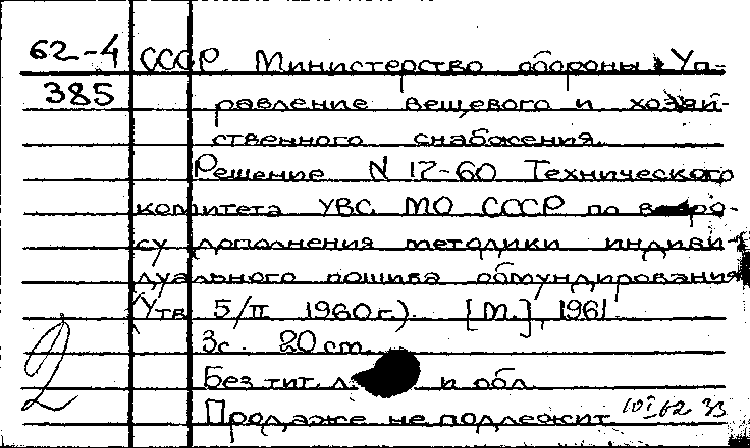 62-4 СССР. Министерство обороны. Уп-
385 равление вещевого и хозяй-
ственного снабжения.
Решение N 17-60 Технического
комитета УВС МО СССР по вопро-
су дополнения методики индиви-
дуального пошива обмундирования
(Утв. 5/II 1960г.). [М.], 1961.
3с. 20 cm.
Без тит. л. и обл.
Продаже не подлежит
2